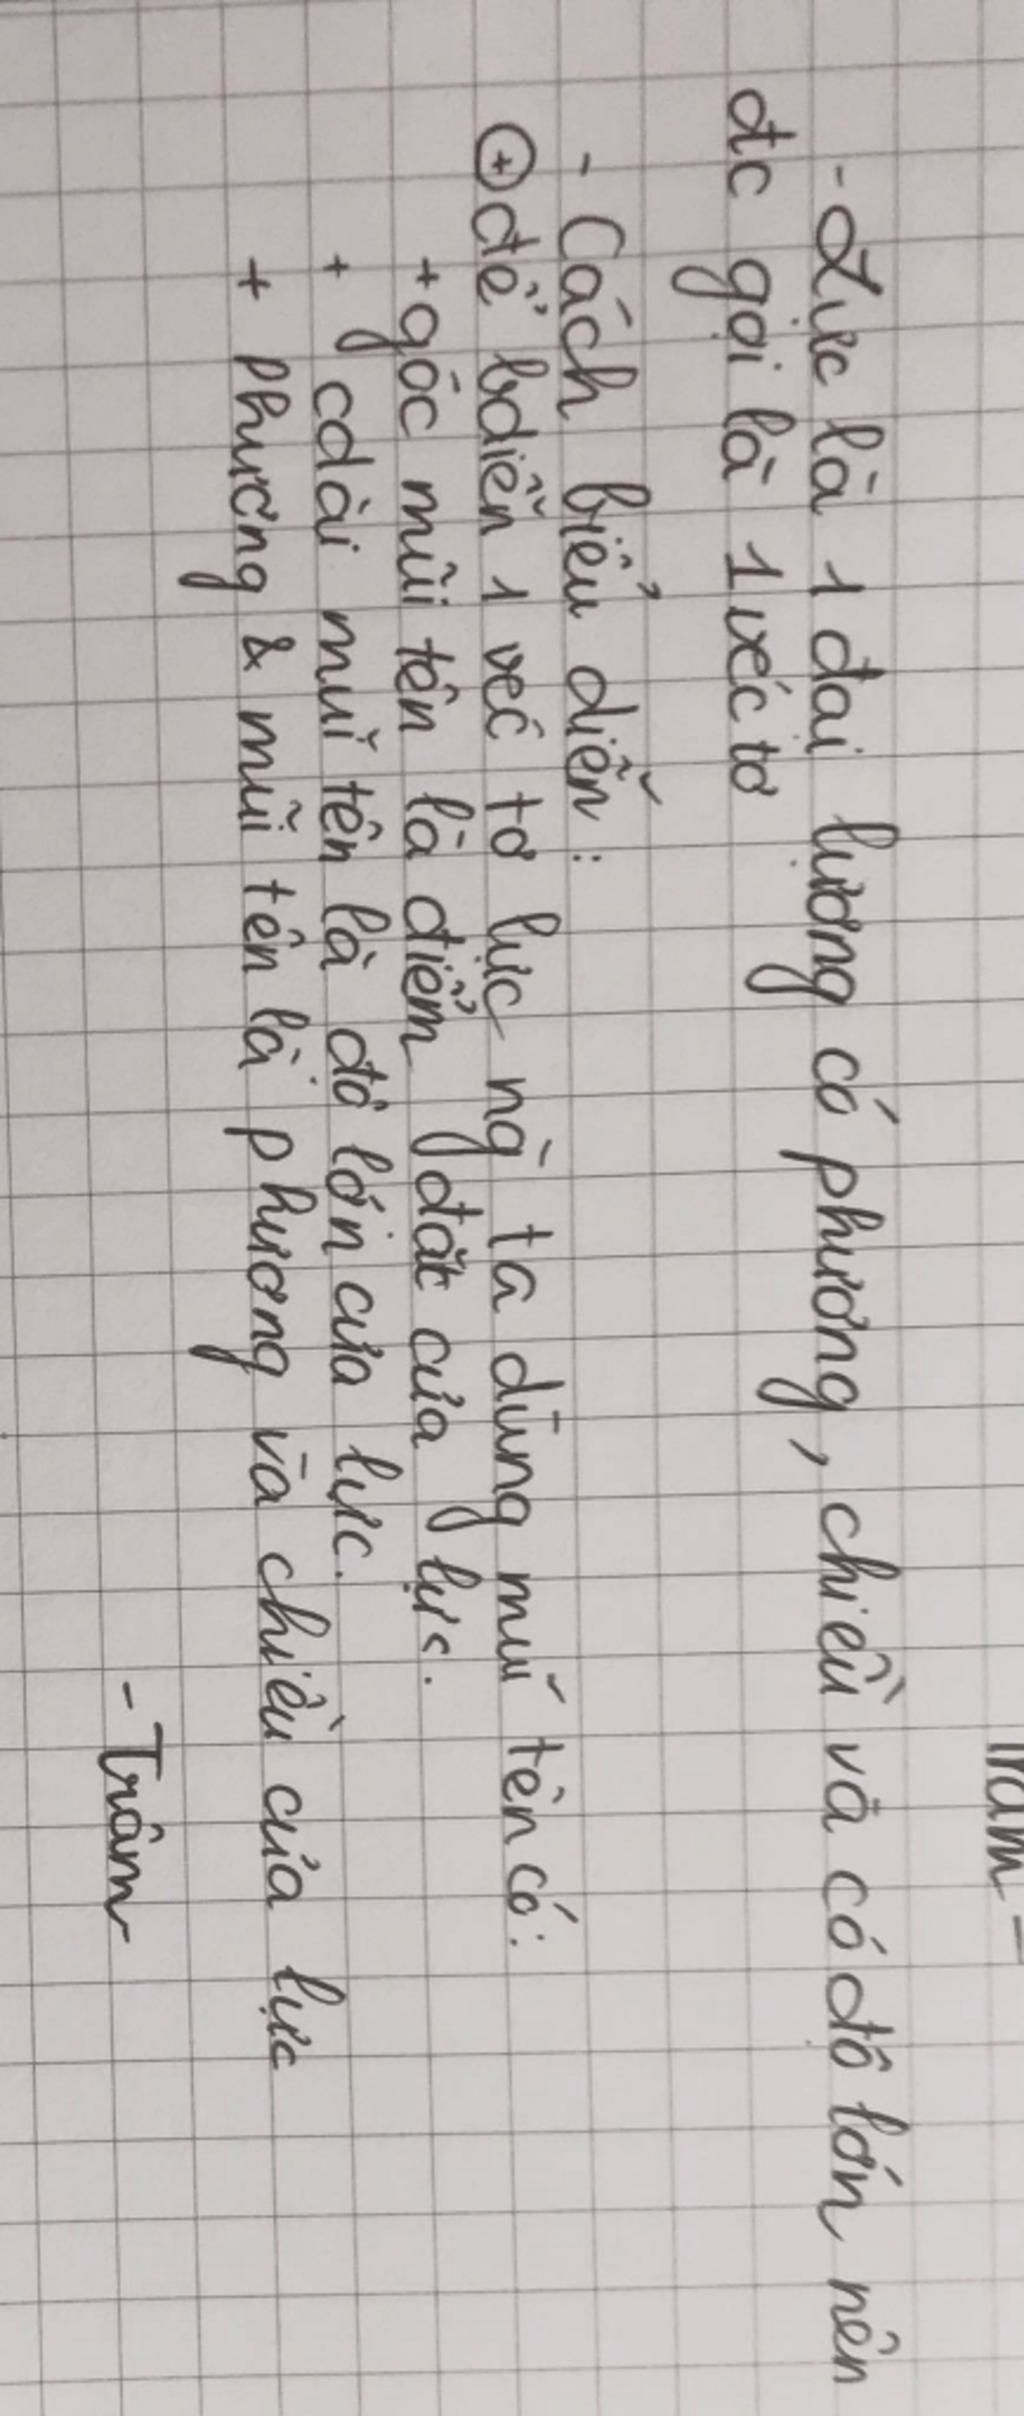 - Lực là 1 đại lượng có phương, chiều và có độ lớn nên
đc gọi là 1 véc tơ
- Cách biểu diễn:
⊕ để bdiễn 1 véc tơ lực ng` ta dùng mũi tên có:
+ gốc mũi tên là điểm đặt của lực.
+ cdài mũi tên là độ lớn của lực.
+ phương & mũi tên là phương và chiều của lực
- Trâm